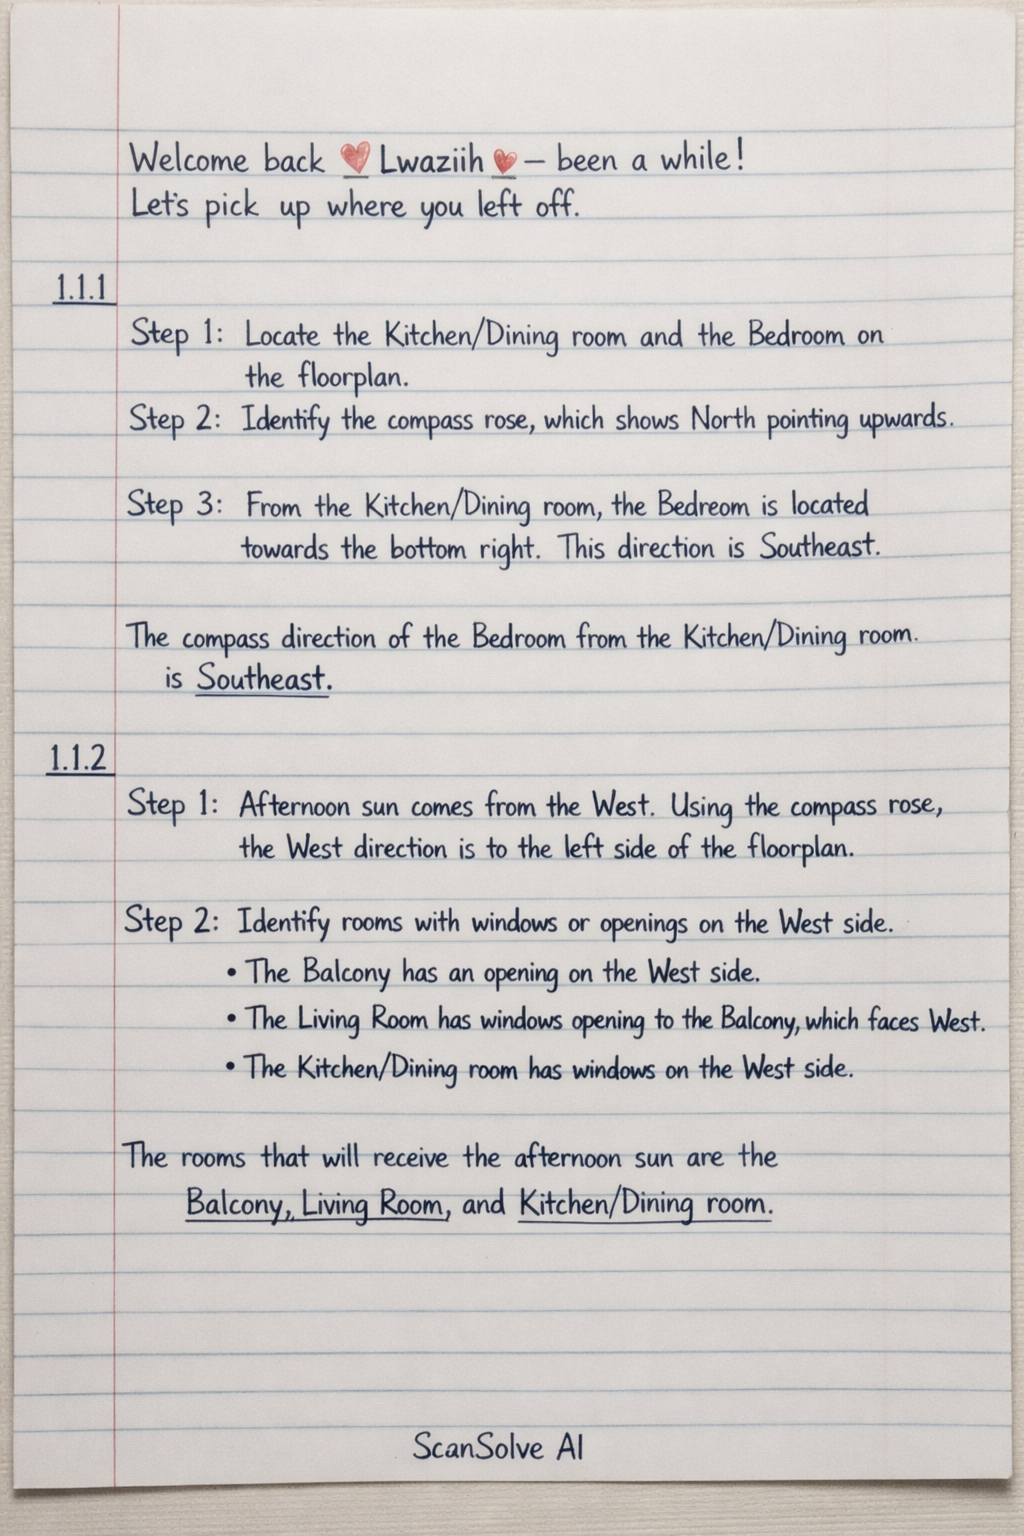 Welcome back ❤️ Lwaziih ❤️ – been a while!
Let's pick up where you left off.
1.1.1
Step 1: Locate the Kitchen/Dining room and the Bedroom on
the floorplan.
Step 2: Identify the compass rose, which shows North pointing upwards.
Step 3: From the Kitchen/Dining room, the Bedreom is located
towards the bottom right. This direction is Southeast.
The compass direction of the Bedroom from the Kitchen/Dining room.
is Southeast.
1.1.2
Step 1: Afternoon sun comes from the West. Using the compass rose,
the West direction is to the left side of the floorplan.
Step 2: Identify rooms with windows or openings on the West side.
• The Balcony has an opening on the West side.
• The Living Room has windows opening to the Balcony, which faces West.
• The Kitchen/Dining room has windows on the West side.
The rooms that will receive the afternoon sun are the
Balcony, Living Room, and Kitchen/Dining room.
ScanSolve AI